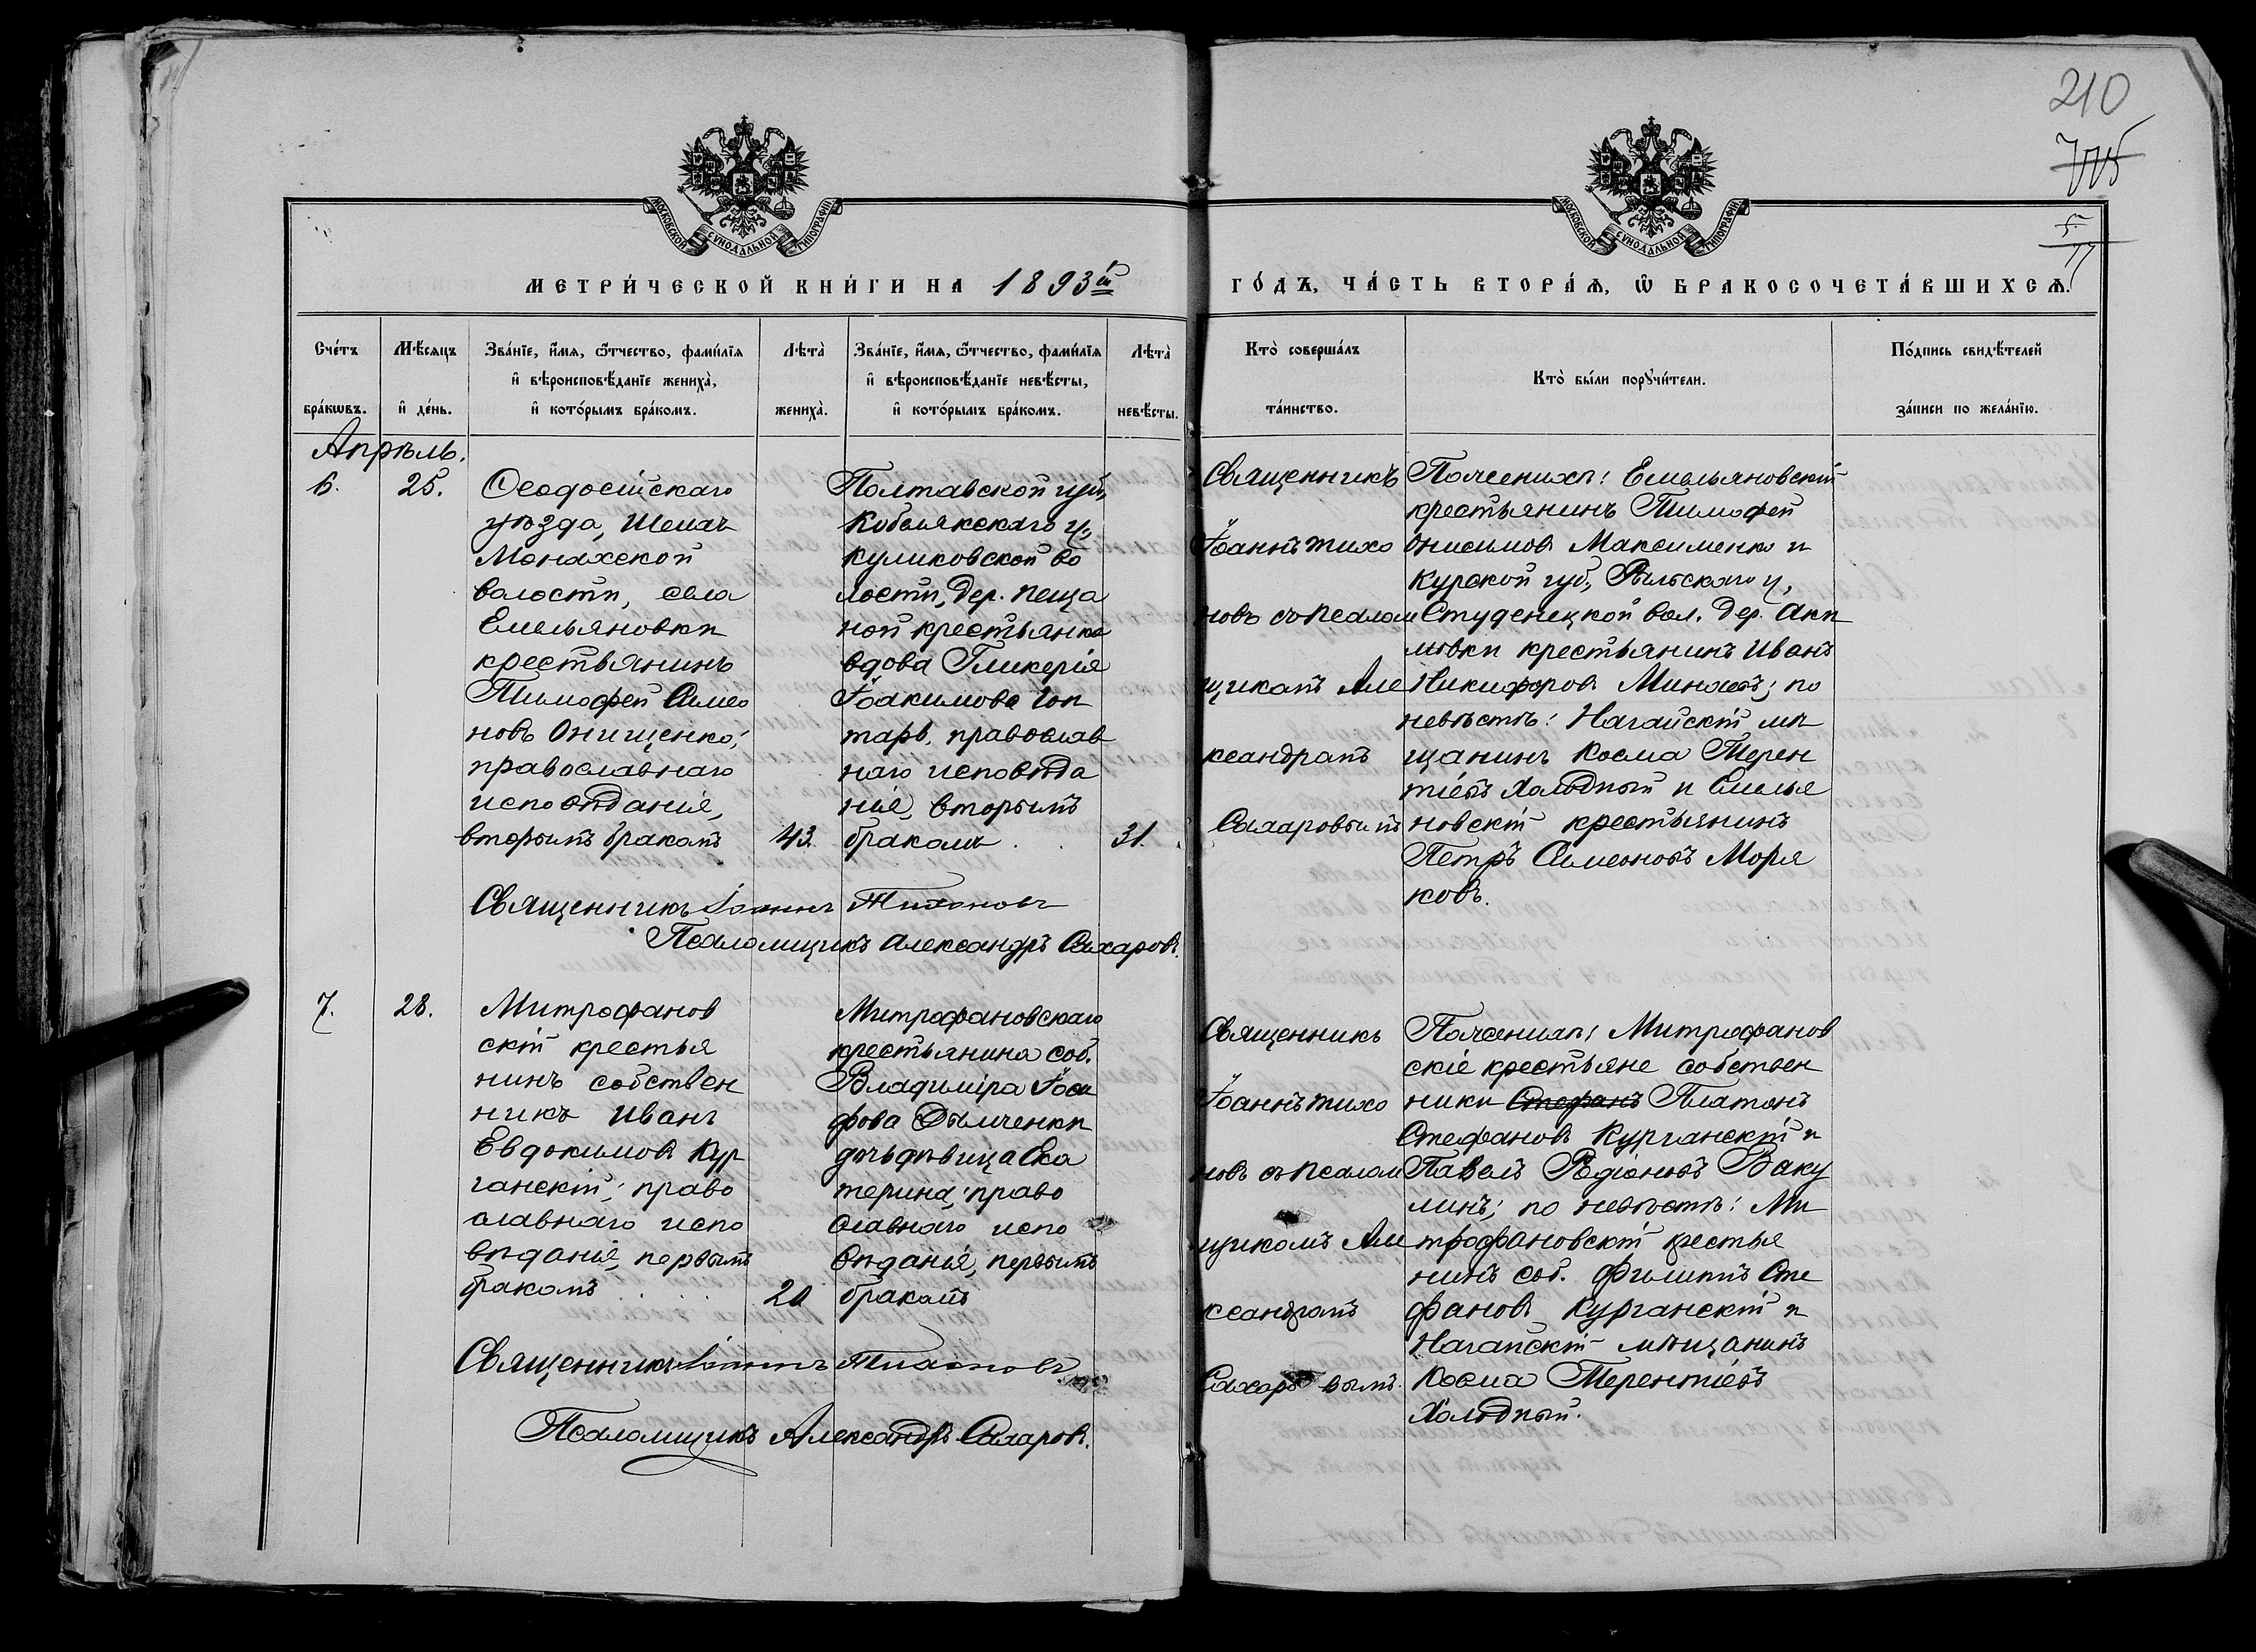 210
МОСКОВСКОЙ СѴНОДАЛЬНОЙ ТИПОГРАФІИ
МОСКОВСКОЙ СѴНОДАЛЬНОЙ ТИПОГРАФІИ
МЕТРИ́ЧЕСКОЙ КНИ́ГИ НА 1893й
ГО́ДЪ, ЧА́СТЬ ВТОРА́Ѧ, Ѿ БРАКОСОЧЕТА́ВШИХСѦ.
Сче́тъ бра́кѡвъ.
Мѣ́сѧцъ и҆ де́нь.
Зва́нїе, и҆́мѧ, ѻ҆́тчество, фамѝлїѧ
и҆ вѣроисповѣ́данїе женихà,
и҆ кото́рымъ бра́комъ.
Лѣтà женихà.
Зва́нїе, и҆́мѧ, ѻ҆́тчество, фамѝлїѧ
и҆ вѣроисповѣ́данїе невѣ́сты,
и҆ кото́рымъ бра́комъ.
Лѣтà невѣ́сты.
Ктò соверша́лъ
та́инство.
Ктò бы́ли порꙋчи́тели.
По́дпись свидѣ́телей
за́писи по жела́нїю.
Апрѣль.
6.
25.
Ѳеодосійскаго
уѣзда, Шеихъ
Монахской
волости, села
Емельяновки
крестьянинъ
Тимофей Симео
новъ Онищенко,
православнаго
исповѣданія,
вторымъ бракомъ
43.
Полтавской губ.,
Кобелякскаго у.,
Куликовской во
лости, дер. Песча
ной крестьянка
вдова Гликерія
Іоакимова Гон
тарь, православ
наго исповѣда
нія, вторымъ
бракомъ
31.
Священникъ
Іоаннъ Тихо
новъ съ псалом
щикомъ Але
ксандромъ
Сахаровымъ
По женихѣ: Емельяновскій
крестьянинъ Тимофей
Онисимовъ Максименко и
Курской губ., Рыльскаго у,
Студенецкой вол. дер. Аки
мовки крестьянинъ Иванъ
Никифоровъ Минаевъ; по
невѣстѣ: Ногайскій мѣ
щанинъ Косма Терен
тіевъ Холодный и Емелья
новскій крестьянинъ
Петръ Симеоновъ Моря
ковъ.
Священникъ Іоаннъ Тихоновъ
Псаломщикъ Александръ Сахаровъ.
7.
28.
Митрофанов
скій крестья
нинъ собствен
никъ Иванъ
Евдокимовъ Кур
ганскій; право
славнаго испо
вѣданія, первымъ
бракомъ
20
Митрофановскаго
крестьянина соб.
Владиміра Іоси
фова Дымченки
дочь дѣвица Ека
терина, право
славнаго испо
вѣданія, первымъ
бракомъ
Священникъ
Іоаннъ Тихо
новъ съ псалом
щикомъ Але
ксандромъ
Сахаровымъ.
По женихѣ: Митрофанов
скіе крестьяне собствен
ники Стефанъ Платонъ
Стефановъ Курганскій и
Павелъ Родіоновъ Ваку
линъ; по невѣстѣ: Ми
трофановскій крестья
нинъ соб. Филиппъ Сте
фановъ Курганскій и
Ногайскій мѣщанинъ
Косма Терентіевъ
Холодный.
Священникъ Іоаннъ Тихоновъ
Псаломщикъ Александръ Сахаровъ.